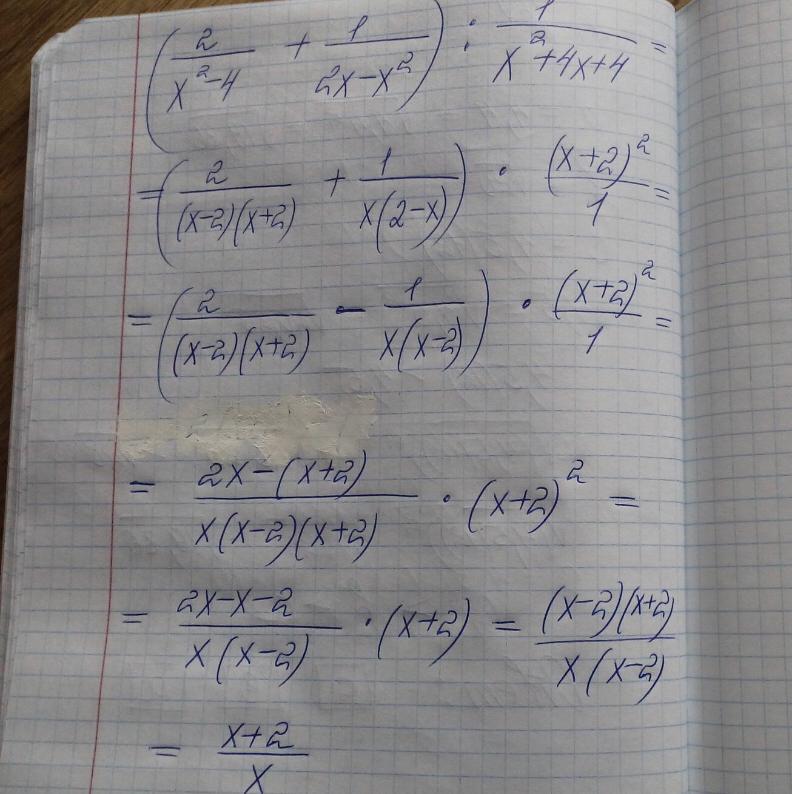 (2/(x²-4) + 1/(2x-x²)) : 1/(x²+4x+4) =
= (2/((x-2)(x+2)) + 1/(x(2-x))) · (x+2)²/1 =
= (2/((x-2)(x+2)) - 1/(x(x-2))) · (x+2)²/1 =
= (2x-(x+2))/(x(x-2)(x+2)) · (x+2)² =
= (2x-x-2)/(x(x-2)) · (x+2) = ((x-2)(x+2))/(x(x-2))
= (x+2)/x